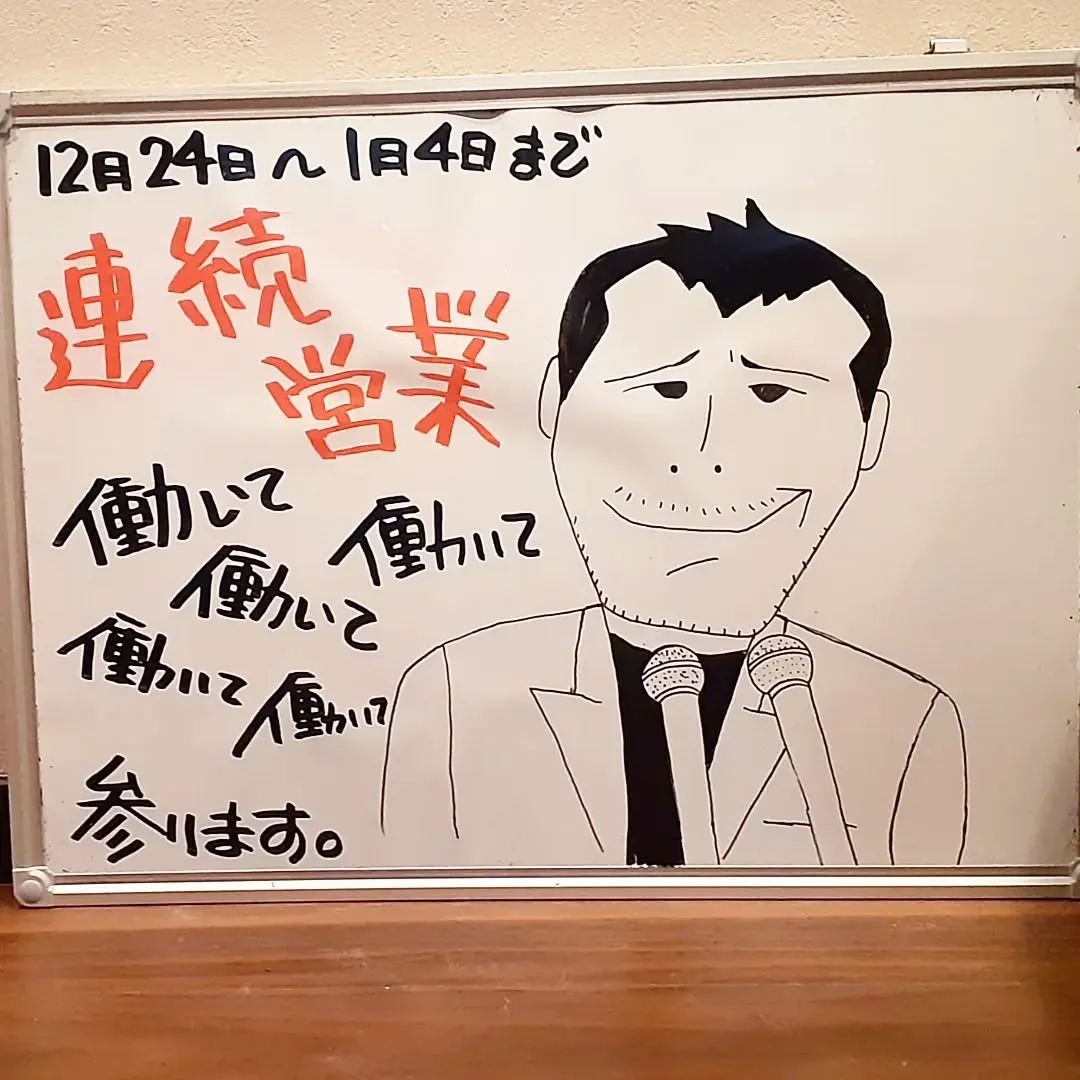 12月24日〜1月4日まで
連続
営業
働いて
働いて
働いて
働いて
働いて
参ります。